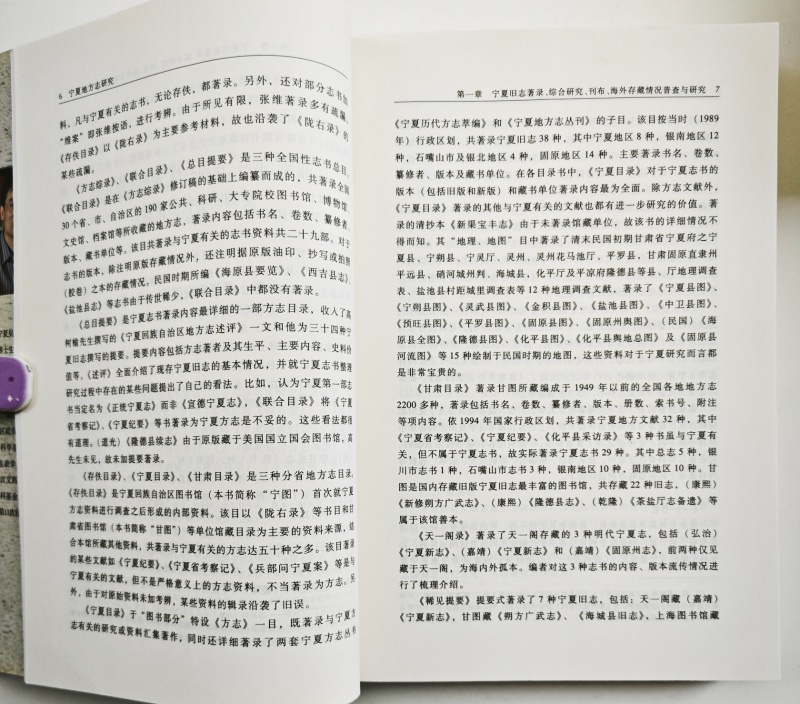 6 宁夏地方志研究
料，凡与宁夏有关的志书，无论存佚，都著录。另外，还对部分志书加
“维案”即张维按语，进行考辨。由于所见有限，张维著录多有疏漏，
《存佚目录》以《陇右录》为主要参考材料，故也沿袭了《陇右录》的
某些疏漏。
《方志综录》、《联合目录》、《总目提要》是三种全国性志书总目。
《联合目录》是在《方志综录》修订稿的基础上编纂而成的，共著录全国
30个省、市、自治区的190家公共、科研、大专院校图书馆、博物馆、
文史馆、档案馆等所收藏的地方志，著录内容包括书名、卷数、纂修者、
版本、藏书单位等。该目共著录与宁夏有关的志书资料共二十九部。对于
志书的版本，除注明原版存藏情况外，还注明据原版油印、抄写或拍照
（胶卷）之本的存藏情况。民国时期所编《海原县要览》、《西吉县志》、
《盐池县志》等志书由于传世稀少，《联合目录》中都没有著录。
《总目提要》是宁夏志书著录内容最详细的一部方志目录，收入了高
树榆先生撰写的《宁夏回族自治区地方志述评》一文和他为三十四种宁
夏旧志撰写的提要。提要内容包括方志著者及其生平、主要内容、史料价
值等。《述评》全面介绍了现存宁夏旧志的基本情况，并就宁夏志书整理
研究过程中存在的某些问题提出了自己的看法。比如，认为宁夏第一部志
书当定名为《正统宁夏志》而非《宣德宁夏志》，《联合目录》将《宁夏
省考察记》、《宁夏纪要》等书著录为宁夏方志是不妥的。这些看法都很
有道理。（道光）《隆德县续志》由于原版藏于美国国立国会图书馆，高
先生未见，故未加提要著录。
《存佚目录》、《宁夏目录》、《甘肃目录》是三种分省地方志目录。
《存佚目录》是宁夏回族自治区图书馆（本书简称“宁图”）首次就宁夏
方志资料进行调查之后形成的内部资料。该目以《陇右录》等书目和甘
肃省图书馆（本书简称“甘图”）等单位馆藏目录为主要的资料来源，结
合本馆所藏其他资料，共著录与宁夏有关的方志达五十种之多。该目著录
的某些文献如《宁夏纪要》、《宁夏省考察记》、《兵部问宁夏案》等是与
宁夏有关的文献，但不是严格意义上的方志资料，不当著录为方志。另
外，由于对原始资料未加考辨，某些资料的辑录沿袭了旧误。
《宁夏目录》于“图书部分”特设《方志》一目，既著录与宁夏方
志有关的研究或资料汇集著作，同时还详细著录了两套宁夏方志丛书
第一章 宁夏旧志著录、综合研究、刊布、海外存藏情况普查与研究 7
《宁夏历代方志萃编》和《宁夏地方志丛刊》的子目。该目按当时（1989
年）行政区划，共著录宁夏旧志38种，其中宁夏地区8种，银南地区12
种，石嘴山市及银北地区4种，固原地区14种。主要著录书名、卷数、
纂修者、版本及藏书单位。在各目录书中，《宁夏目录》对于宁夏志书的
版本（包括旧版和新版）和藏书单位著录内容最为全面。除方志文献外，
《宁夏目录》著录的其他与宁夏有关的文献也都有进一步研究的价值。著
录的清抄本《新渠宝丰志》由于未著录馆藏单位，故该书的详细情况不
得而知。其“地理、地图”目中著录了清末民国初期甘肃省宁夏府之宁
夏县、宁朔县、宁灵厅、灵州、灵州花马池厅、平罗县，甘肃固原直隶州
平远县、硝河城州判、海城县，化平厅及平凉府隆德县等县、厅地理调查
表、盐池县村距城里调查表等12种地理调查文献，著录了《宁夏县图》、
《宁朔县图》、《灵武县图》、《金积县图》、《盐池县图》、《中卫县图》、
《预旺县图》、《平罗县图》、《固原县图》、《固原州舆图》、（民国）《海
原县全图》、《隆德县图》、《化平县图》、《化平县舆地总图》及《固原县
河流图》等15种绘制于民国时期的地图，这些资料对于宁夏研究而言都
是非常宝贵的。
《甘肃目录》著录甘图所藏编成于1949年以前的全国各地地方志
2200多种，著录包括书名、卷数、纂修者、版本、册数、索书号、附注
等项内容。依1994年国家行政区划，共著录宁夏地方文献32种，其中
《宁夏省考察记》、《宁夏纪要》、《化平县采访录》等3种书虽与宁夏有
关，但不属于宁夏志书，故实际著录宁夏志书29种。其中总志5种，银
川市志书1种，石嘴山市志书3种，银南地区10种，固原地区10种。甘
图是国内存藏旧版宁夏旧志最丰富的图书馆，共存藏22种旧志，（康熙）
《新修朔方广武志》、（康熙）《隆德县志》、（乾隆）《茶盐厅志备遗》等
属于该馆善本。
《天一阁录》著录了天一阁存藏的3种明代宁夏志，包括（弘治）
《宁夏新志》、（嘉靖）《宁夏新志》和（嘉靖）《固原州志》，前两种仅见
藏于天一阁，为海内外孤本。编者对这3种志书的内容、版本流传情况进
行了梳理介绍。
《稀见提要》提要式著录了7种宁夏旧志，包括：天一阁藏（嘉靖）
《宁夏新志》，甘图藏《朔方广武志》、《海城县旧志》，上海图书馆藏